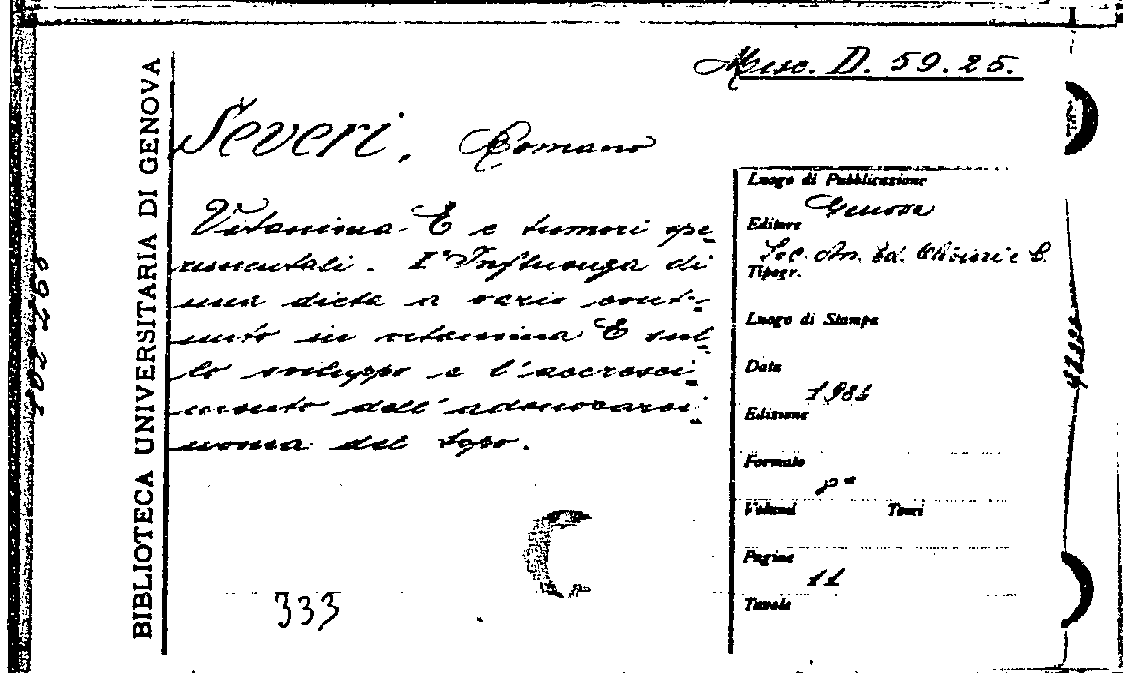 Misc. D. 59.25.
BIBLIOTECA UNIVERSITARIA DI GENOVA
Severi, Romano
Vitamina E e tumori spe-
rimentali. I° Influenza di
una dieta a vario conte-
nuto in vitamina E sul-
lo sviluppo e l'accresci-
mento dell'adenocarci-
noma del topo.
333
Luogo di Pubblicazione
Genova
Editore
Soc. An. Ed. e C.
Tipogr.
Luogo di Stampa
Data
Edizione
Formato
8°
Volumi Tomi
Pagine
11
Tavole